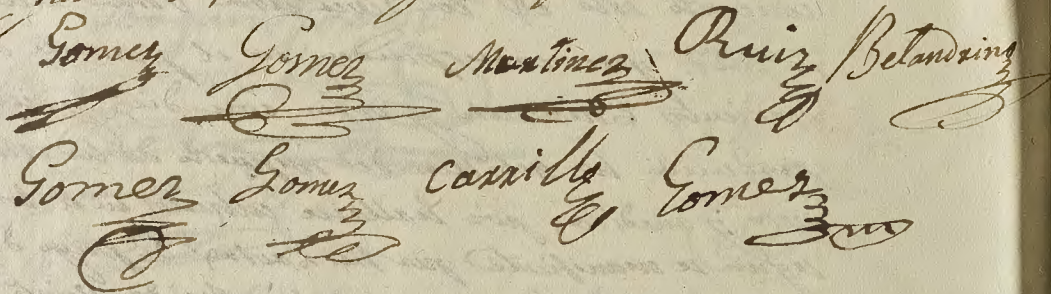 Gomez Gomez Martinez Ruiz Belandrino
Gomez Gomez Carrillo Gomez